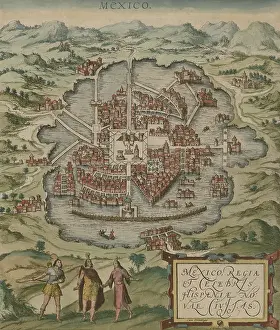 MEXICO.
MEXICO, REGIA
ET CELEBRIS
HISPANIÆ NO
VAE CIVITAS